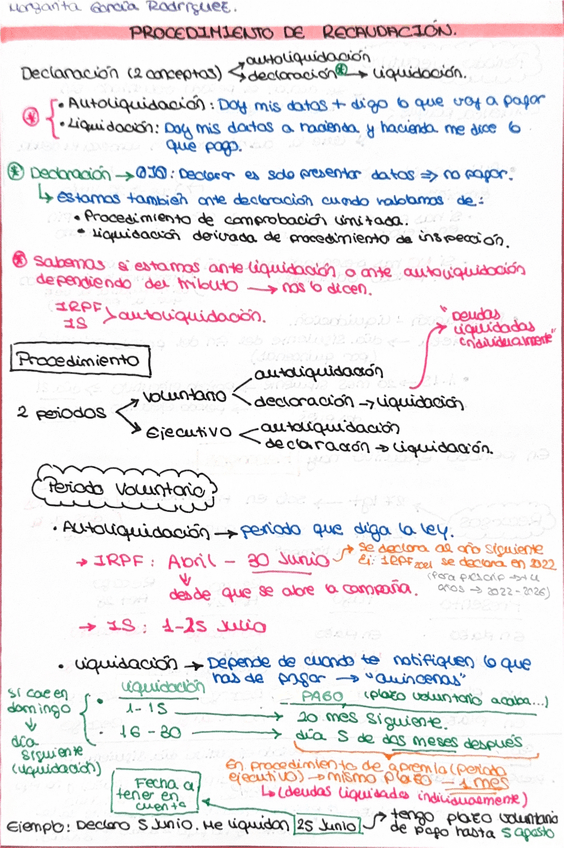 Margarita García Rodríguez.
PROCEDIMIENTO DE RECAUDACIÓN.
Declaración (2 conceptos) < autoliquidación
declaración * → liquidación.
* { • Autoliquidación: Doy mis datos + digo lo que voy a pagar
• Liquidación: Doy mis datos a hacienda y hacienda me dice lo
que pago.
* Declaración → OJO: Declarar es solo presentar datos ⇒ no pagar.
↳ Estamos también ante declaración cuando hablamos de:
• Procedimiento de comprobación limitada.
• Liquidación derivada de procedimiento de inspección.
* Sabemos si estamos ante liquidación o ante autoliquidación
dependiendo del tributo → nos lo dicen.
IRPF
IS > autoliquidación.
"Deudas
liquidadas
individualmente"
Procedimiento
2 periodos
→ Voluntario < autoliquidación
declaración → liquidación
→ Ejecutivo < autoliquidación
declaración → liquidación.
Periodo Voluntario
• Autoliquidación → periodo que diga la ley.
→ IRPF: Abril - 30 Junio → se declara al año siguiente
Ej: IRPF 2021 se declara en 2022
(Para prescrip → +4
años → 2022-2026)
desde que se abre la campaña.
→ IS: 1-25 Julio
• Liquidación → Depende de cuando te notifiquen lo que
has de pagar → "quincenas"
Liquidación PAGO (plazo voluntario acaba...)
• 1-15 → 20 mes siguiente.
• 16-30 → día 5 de dos meses después
Si cae en
domingo
↓
día
siguiente
(liquidación)
En procedimiento de apremio (periodo
ejecutivo) → mismo plazo - 1 mes
↳ (deudas liquidadas individualmente)
Fecha a
tener en
cuenta
Ejemplo: Declaro 5 Junio. Me liquidan 25 Junio → tengo plazo voluntario
de pago hasta 5 agosto